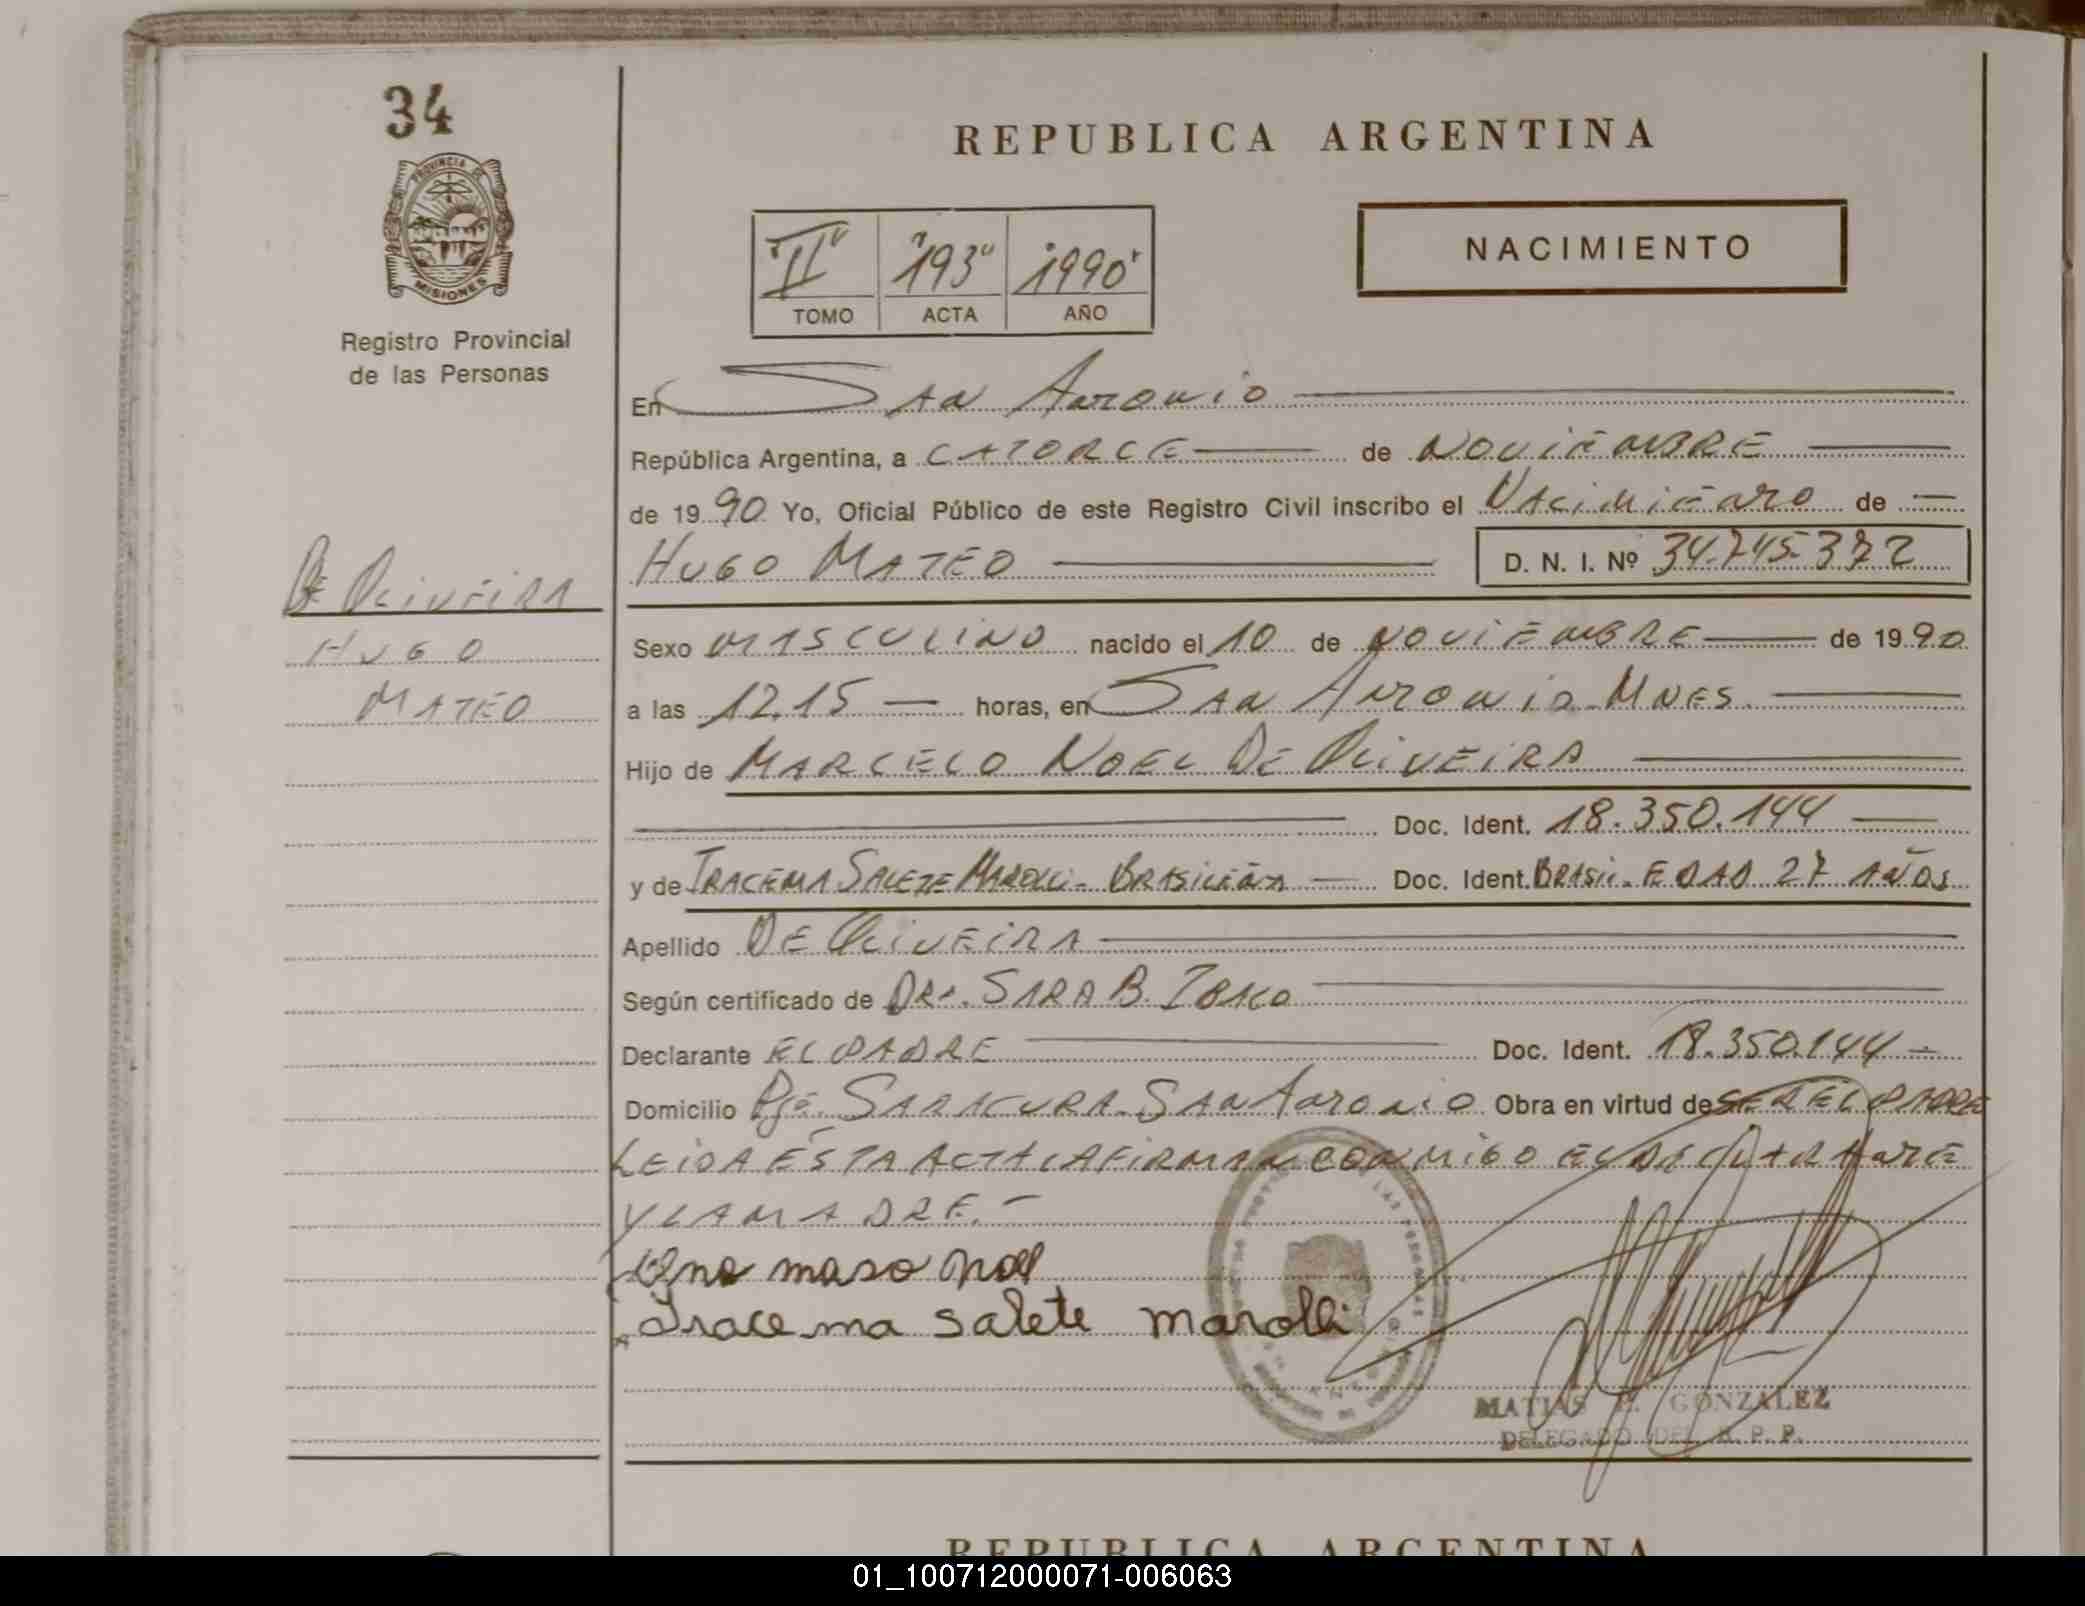 34
REPUBLICA ARGENTINA
PROVINCIA DE
MISIONES
Registro Provincial
de las Personas
"II" "193" "1990"
TOMO ACTA AÑO
NACIMIENTO
En San Antonio
República Argentina, a CATORCE de NOVIEMBRE
de 1990 Yo, Oficial Público de este Registro Civil inscribo el NACIMIENTO de
HUGO MATEO D. N. I. Nº 34.745.372
De Oliveira
HUGO
MATEO
Sexo MASCULINO nacido el 10 de NOVIEMBRE de 1990
a las 12.15 horas, en SAN ANTONIO Mnes.
Hijo de MARCELO NOEL DE OLIVEIRA
Doc. Ident. 18.350.144
y de IRACEMA SALETE MAROLLI - BRASILEÑA Doc. Ident. BRASIL. EDAD 27 AÑOS
Apellido DE OLIVEIRA
Según certificado de DRA. SARA B.
Declarante EL PADRE Doc. Ident. 18.350.144
Domicilio Pje. SARACURA - SAN ANTONIO Obra en virtud de SER EL PADRE
LEIDA ESTA ACTA LA FIRMAN CONMIGO EL DECLARANTE
Y LA MADRE.
Iracema salete marolli
MATIAS GONZALEZ
DELEGADO DEL R. P. P.
REPUBLICA ARGENTINA
01_100712000071-006063